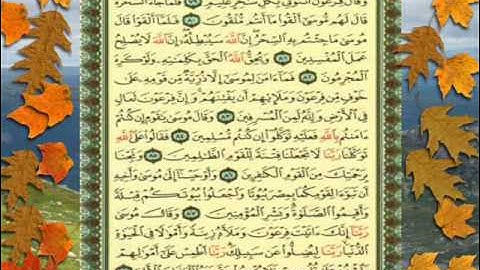 وَقَالَ فِرْعَوْنُ ٱئْتُونِى بِكُلِّ سَٰحِرٍ عَلِيمٍ ٧٩ فَلَمَّا جَآءَ ٱلسَّحَرَةُ
قَالَ لَهُم مُّوسَىٰٓ أَلْقُوا۟ مَآ أَنتُم مُّلْقُونَ ٨٠ فَلَمَّآ أَلْقَوْا۟ قَالَ
مُوسَىٰ مَا جِئْتُم بِهِ ٱلسِّحْرُ إِنَّ ٱللَّهَ سَيُبْطِلُهُۥٓ إِنَّ ٱللَّهَ لَا يُصْلِحُ
عَمَلَ ٱلْمُفْسِدِينَ ٨١ وَيُحِقُّ ٱللَّهُ ٱلْحَقَّ بِكَلِمَٰتِهِۦ وَلَوْ كَرِهَ
ٱلْمُجْرِمُونَ ٨٢ فَمَآ ءَامَنَ لِمُوسَىٰٓ إِلَّا ذُرِّيَّةٌ مِّن قَوْمِهِۦ عَلَىٰ
خَوْفٍ مِّن فِرْعَوْنَ وَمَلَإِي۟هِمْ أَن يَفْتِنَهُمْ وَإِنَّ فِرْعَوْنَ لَعَالٍ
فِى ٱلْأَرْضِ وَإِنَّهُۥ لَمِنَ ٱلْمُسْرِفِينَ ٨٣ وَقَالَ مُوسَىٰ يَٰقَوْمِ إِن كُنتُمْ
ءَامَنتُم بِٱللَّهِ فَعَلَيْهِ تَوَكَّلُوٓا۟ إِن كُنتُم مُّسْلِمِينَ ٨٤ فَقَالُوا۟ عَلَى ٱللَّهِ
تَوَكَّلْنَا رَبَّنَا لَا تَجْعَلْنَا فِتْنَةً لِّلْقَوْمِ ٱلظَّٰلِمِينَ ٨٥ وَنَجِّنَا
بِرَحْمَتِكَ مِنَ ٱلْقَوْمِ ٱلْكَٰفِرِينَ ٨٦ وَأَوْحَيْنَآ إِلَىٰ مُوسَىٰ وَأَخِيهِ
أَن تَبَوَّءَا لِقَوْمِكُمَا بِمِصْرَ بُيُوتًا وَٱجْعَلُوا۟ بُيُوتَكُمْ قِبْلَةً
وَأَقِيمُوا۟ ٱلصَّلَوٰةَ وَبَشِّرِ ٱلْمُؤْمِنِينَ ٨٧ وَقَالَ مُوسَىٰ
رَبَّنَآ إِنَّكَ ءَاتَيْتَ فِرْعَوْنَ وَمَلَأَهُۥ زِينَةً وَأَمْوَٰلًا فِى ٱلْحَيَوٰةِ
ٱلدُّنْيَا رَبَّنَا لِيُضِلُّوا۟ عَن سَبِيلِكَ رَبَّنَا ٱطْمِسْ عَلَىٰٓ أَمْوَٰلِهِمْ